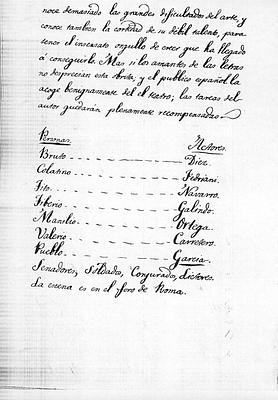 noce demasiado las grandes dificultades del arte, y
conoce tambien la cortedad de su débil talento, para
tener el insensato orgullo de creer que ha llegado
á conseguirla. Mas si los amantes de las letras
no desprecian esta obrita; y el publico español la
acoge benignamente del el teatro; las tareas del
autor quedarán plenamente recompensadas.
Personas. Actores.
Bruto Diez.
Colatino Fedriani.
Tito Navarro.
Tiberio Galindo.
Manilio Ortega.
Valerio Carretero.
Pueblo Garcia.
Senadores, Soldados, Conjurados, lictores.
La escena es en el foro de Roma.